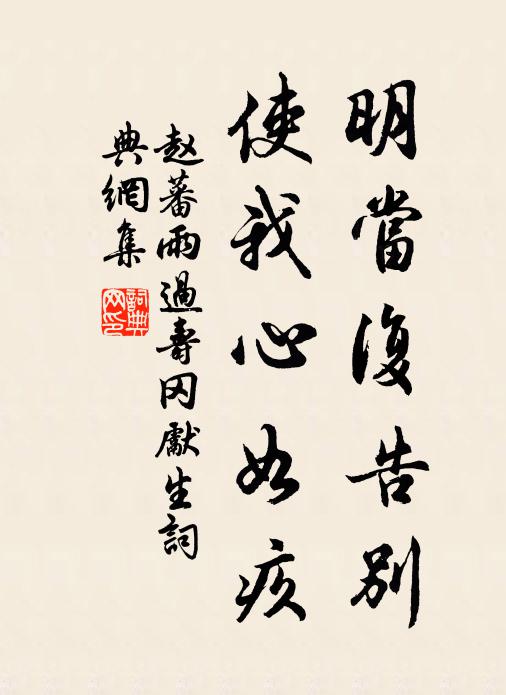 明當復告別
使我心如疚
赵蕃雨過壽冈獻生詞
典網集
詞典
网印